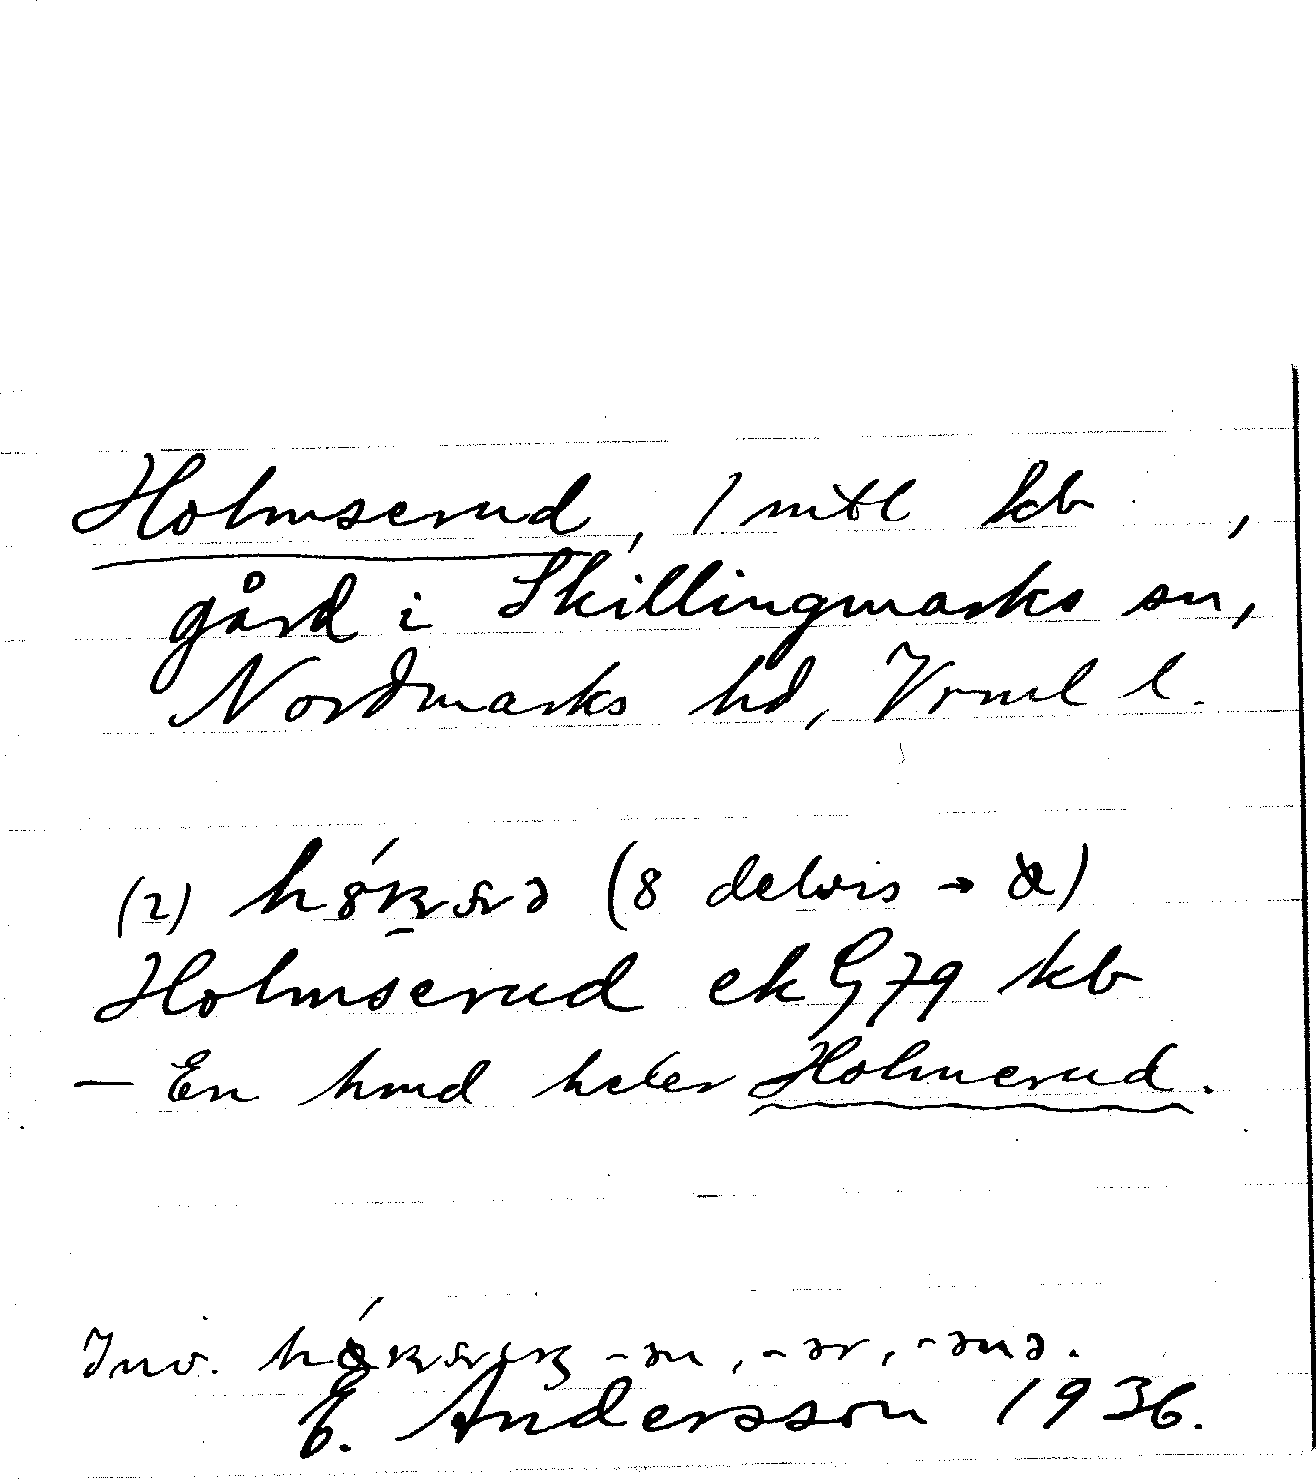 Holmserud, 1 mtl kb ,
gård i Skillingmarks sn,
Nordmarks hd, Vrml l.
(2) (8 delvis →
Holmserud ek G 79 kb
— En hmd heter Holmerud.
Inv. -ən, -ər, -ənə.
E. Andersson 1936.